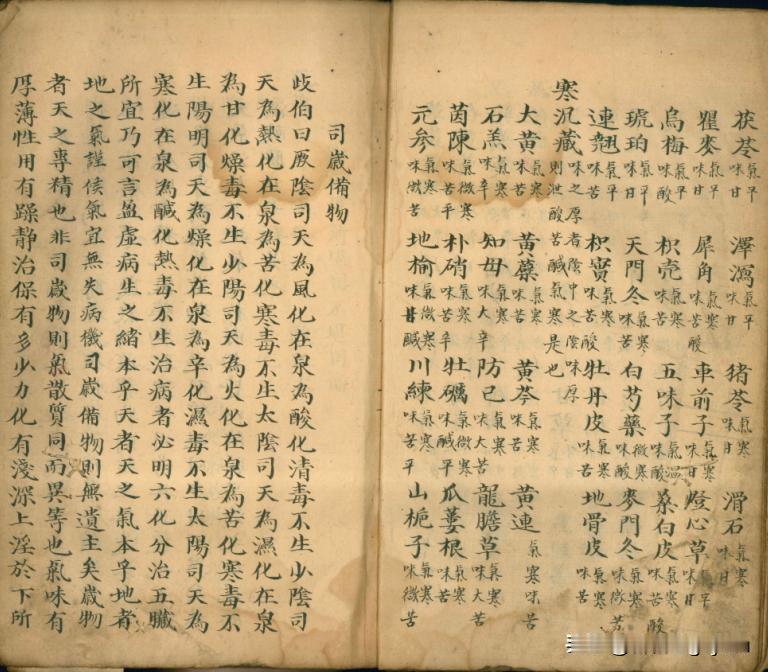 茯苓氣平味甘 澤瀉氣平味甘 猪苓氣寒味甘 滑石氣寒味甘
瞿麥氣平味甘 犀角氣寒味苦酸 車前子氣寒味甘 燈心草氣平味甘
烏梅氣平味酸 枳壳氣寒味苦 五味子氣溫味酸 桑白皮氣寒味苦酸
琥珀氣平味甘 天門冬氣寒味苦 白芍藥微寒味酸 麥門冬氣寒味微苦
連翹氣平味苦 枳實氣寒味苦酸 牡丹皮氣寒味苦 地骨皮氣寒味苦
寒沉藏味之厚者陰中之陰味厚則泄酸苦鹹氣寒是也
大黃氣寒味苦 黃蘗氣寒味苦 黃芩氣寒味苦 黃連氣寒味苦
石羔氣寒味辛 知母氣寒味大辛 防己氣寒味大苦 龍膽草氣寒味大苦
茵陳氣微寒味苦平 朴硝氣寒味苦辛 牡礪氣微寒味鹹平 瓜蔞根氣寒味苦
元參氣寒味微苦 地榆氣微寒味甘鹹 川練氣寒味苦平 山梔子氣寒味微苦
司歲備物
歧伯曰厥陰司天為風化在泉為酸化清毒不生少陰司
天為熱化在泉為苦化寒毒不生太陰司天為濕化在泉
為甘化燥毒不生少陽司天為火化在泉為苦化寒毒不
生陽明司天為燥化在泉為辛化濕毒不生太陽司天為
寒化在泉為鹹化熱毒不生治病者必明六化分治五臟
所宜乃可言盈虛病生之緒本乎天者天之氣本乎地者
地之氣謹候氣宜無失病機司歲備物則無遺主矣歲物
者天之專精也非司歲物則氣散質同而異等也氣味有
厚薄性用有躁静治保有多少力化有淺深上淫於下所